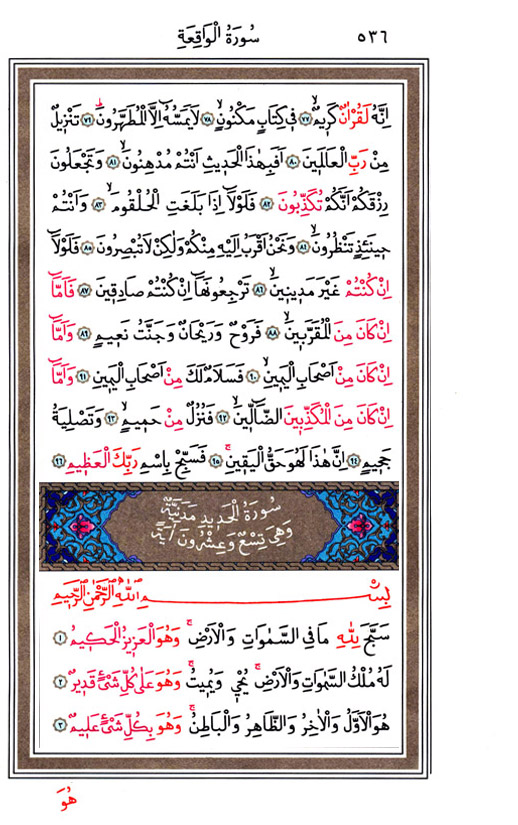 ٥٣٦ سُورَةُ الْوَاقِعَةِ
اِنَّهُ لَقُرْاٰنٌ كَر۪يمٌۙ ﴿٧٧﴾ ف۪ي كِتَابٍ مَكْنُونٍۙ ﴿٧٨﴾ لَا يَمَسُّهُٓ اِلَّا الْمُطَهَّرُونَۜ ﴿٧٩﴾ تَنْز۪يلٌ
مِنْ رَبِّ الْعَالَم۪ينَ ﴿٨٠﴾ اَفَبِهٰذَا الْحَد۪يثِ اَنْتُمْ مُدْهِنُونَۙ ﴿٨١﴾ وَتَجْعَلُونَ
رِزْقَكُمْ اَنَّكُمْ تُكَذِّبُونَ ﴿٨٢﴾ فَلَوْلَٓا اِذَا بَلَغَتِ الْحُلْقُومَۙ ﴿٨٣﴾ وَاَنْتُمْ
ح۪ينَئِذٍ تَنْظُرُونَۙ ﴿٨٤﴾ وَنَحْنُ اَقْرَبُ اِلَيْهِ مِنْكُمْ وَلٰكِنْ لَا تُبْصِرُونَ ﴿٨٥﴾ فَلَوْلَٓا
اِنْ كُنْتُمْ غَيْرَ مَد۪ين۪ينَۙ ﴿٨٦﴾ تَرْجِعُونَهَٓا اِنْ كُنْتُمْ صَادِق۪ينَ ﴿٨٧﴾ فَاَمَّٓا
اِنْ كَانَ مِنَ الْمُقَرَّب۪ينَۙ ﴿٨٨﴾ فَرَوْحٌ وَرَيْحَانٌ وَجَنَّتُ نَع۪يمٍ ﴿٨٩﴾ وَاَمَّٓا
اِنْ كَانَ مِنْ اَصْحَابِ الْيَم۪ينِۙ ﴿٩٠﴾ فَسَلَامٌ لَكَ مِنْ اَصْحَابِ الْيَم۪ينِ ﴿٩١﴾ وَاَمَّٓا
اِنْ كَانَ مِنَ الْمُكَذِّب۪ينَ الضَّٓالّ۪ينَۙ ﴿٩٢﴾ فَنُزُلٌ مِنْ حَم۪يمٍۙ ﴿٩٣﴾ وَتَصْلِيَةُ
جَح۪يمٍ ﴿٩٤﴾ اِنَّ هٰذَا لَهُوَ حَقُّ الْيَق۪ينِۚ ﴿٩٥﴾ فَسَبِّحْ بِاسْمِ رَبِّكَ الْعَظ۪يمِ ﴿٩٦﴾
سُورَةُ الْحَد۪يدِ مَدَنِيَّةٌ
وَهِيَ تِسْعٌ وَعِشْرُونَ اٰيَةً
بِسْمِ اللّٰهِ الرَّحْمٰنِ الرَّح۪يمِ
سَبَّحَ لِلّٰهِ مَا فِي السَّمٰوَاتِ وَالْاَرْضِۚ وَهُوَ الْعَز۪يزُ الْحَك۪يمُ ﴿١﴾
لَهُ مُلْكُ السَّمٰوَاتِ وَالْاَرْضِۚ يُحْي۪ وَيُم۪يتُۚ وَهُوَ عَلٰى كُلِّ شَيْءٍ قَد۪يرٌ ﴿٢﴾
هُوَ الْاَوَّلُ وَالْاٰخِرُ وَالظَّاهِرُ وَالْبَاطِنُۚ وَهُوَ بِكُلِّ شَيْءٍ عَل۪يمٌ ﴿٣﴾
هُوَ